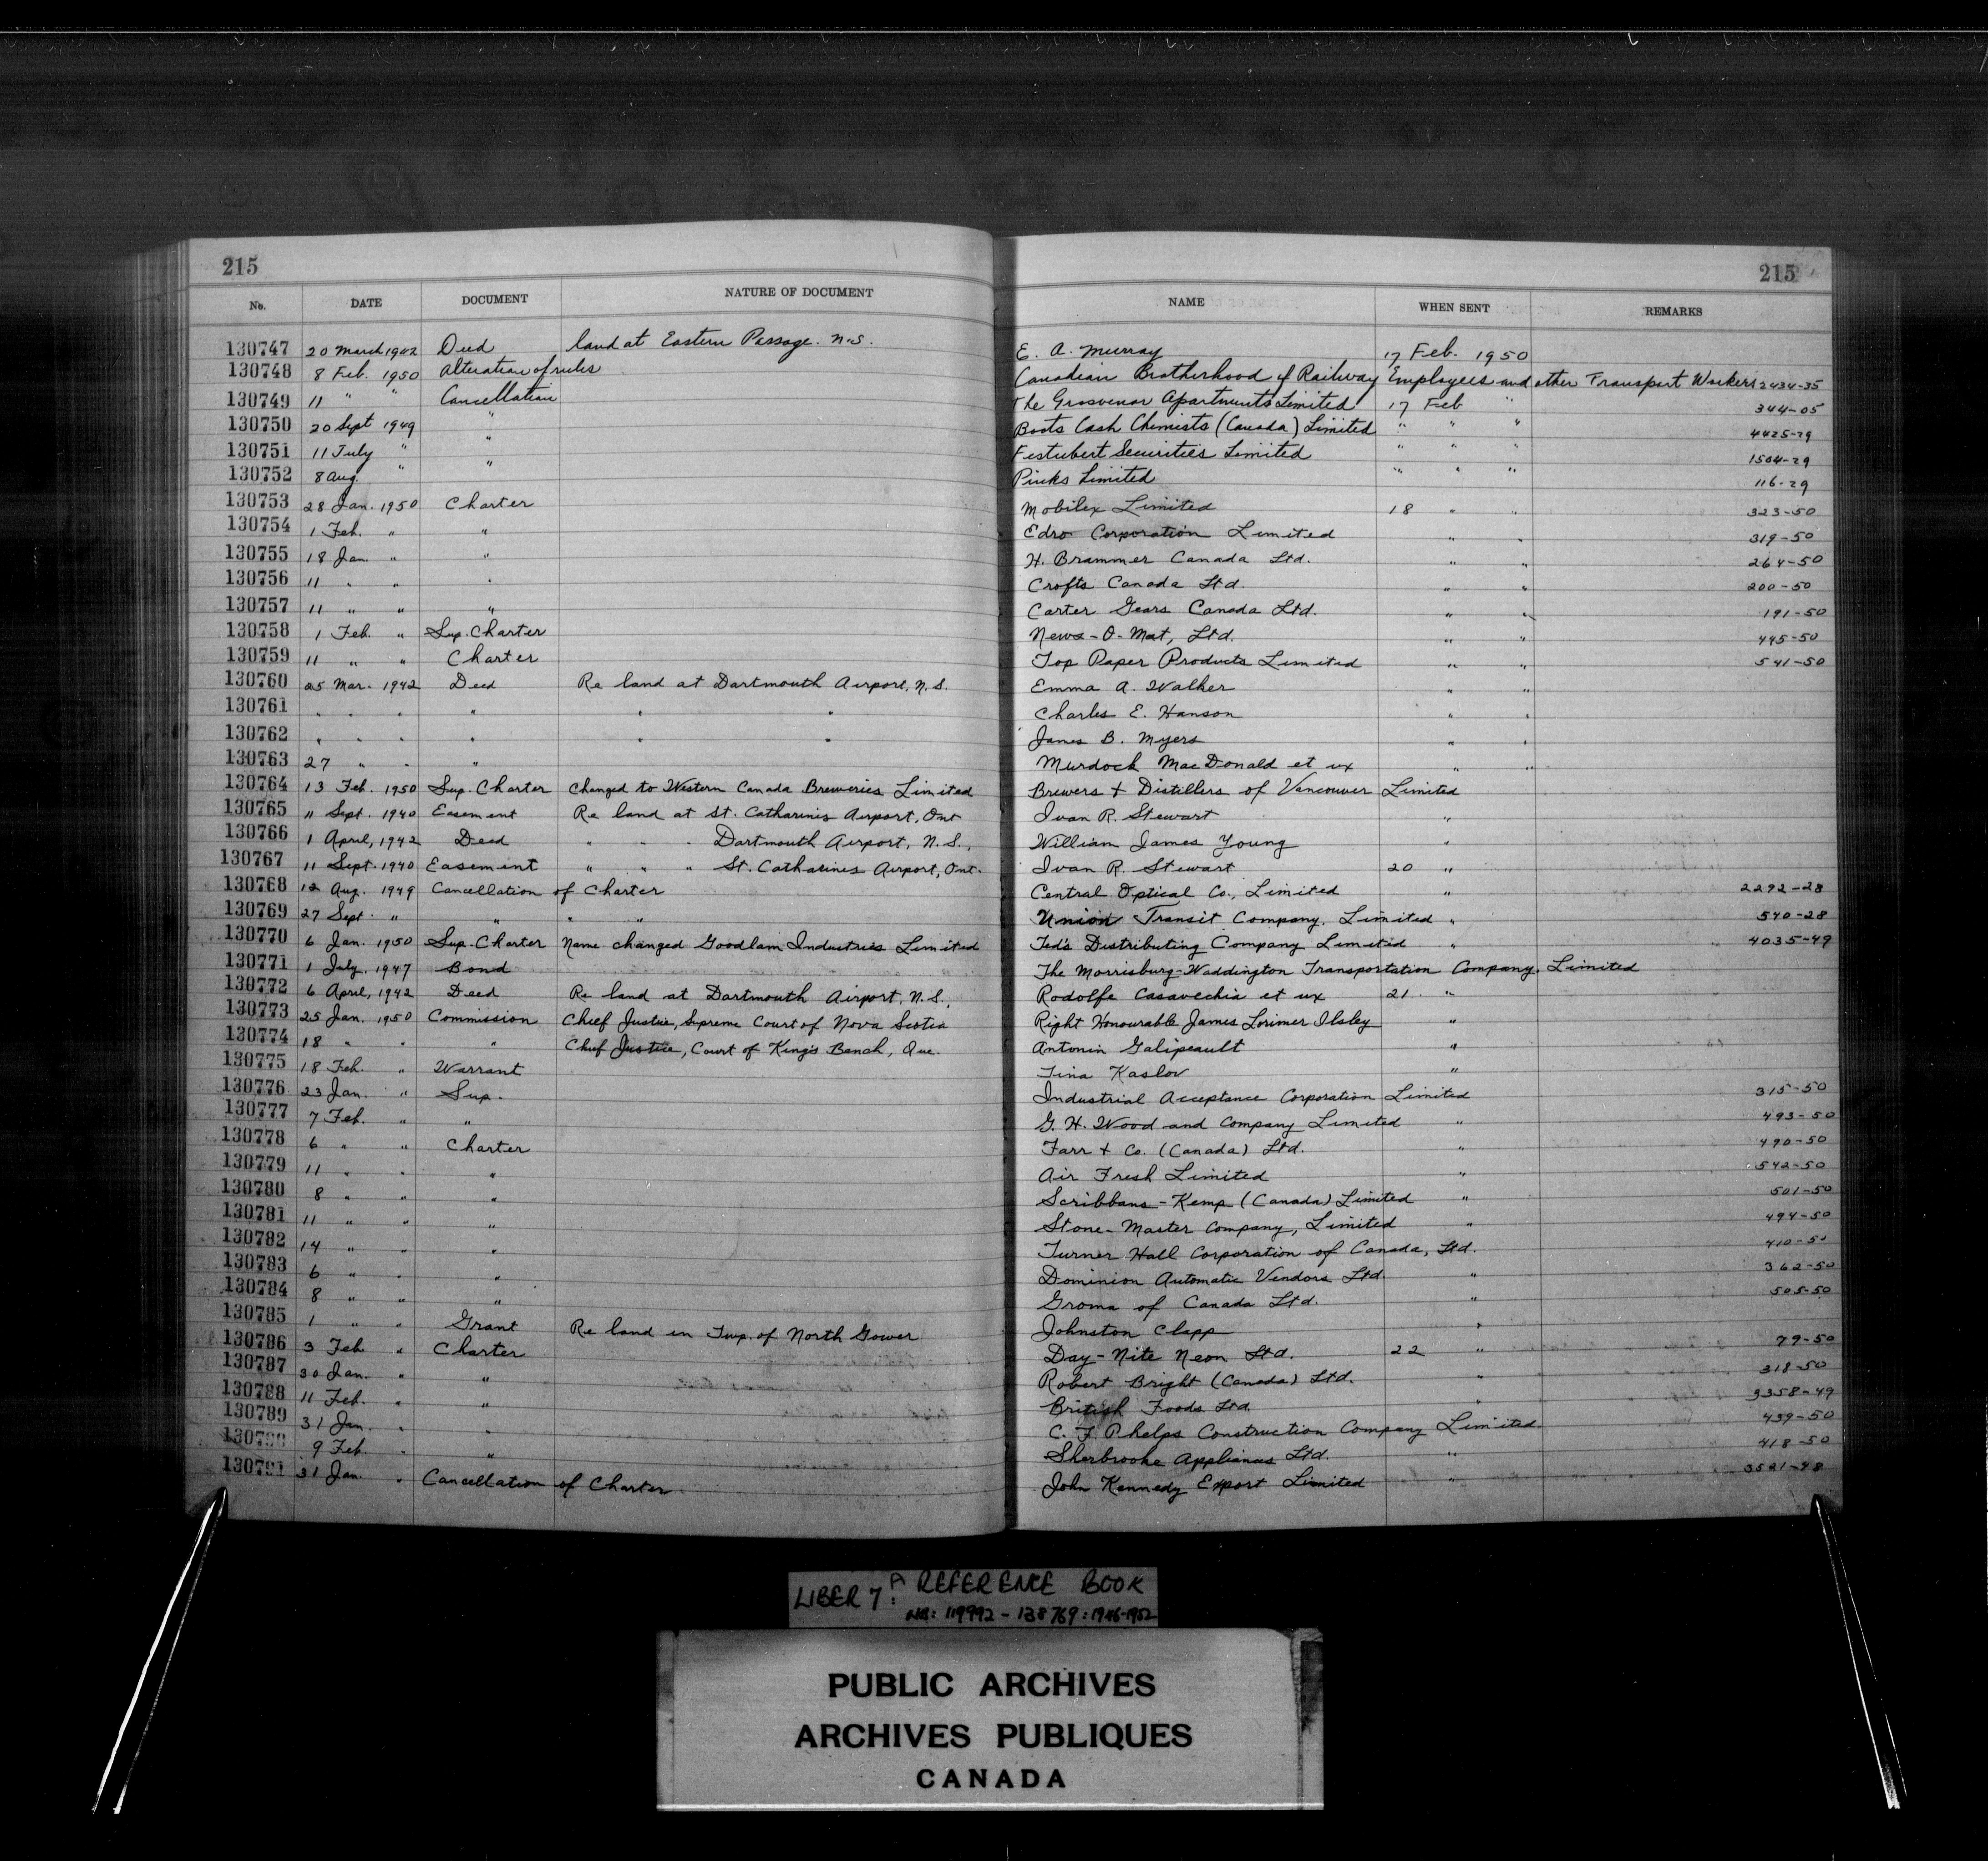 215 215
No. DATE DOCUMENT NATURE OF DOCUMENT NAME WHEN SENT REMARKS
130747 20 March 1942 Deed land at Eastern Passage. N.S. E. A. Murray 17 Feb. 1950
130748 8 Feb. 1950 Alteration of rules Canadian Brotherhood of Railway Employees and other Transport Workers 2434-35
130749 11 " " Cancellation The Grosvenor Apartments Limited 17 Feb " 344-05
130750 20 Sept 1949 " Boots Cash Chemists (Canada) Limited " " " 4425-29
130751 11 July " " Festubert Securities Limited " " " 1504-29
130752 8 Aug. " " Pinks Limited " " " 116-29
130753 28 Jan. 1950 Charter Mobilex Limited 18 " " 323-50
130754 1 Feb. " " Edro Corporation Limited " " 319-50
130755 18 Jan. " " H. Brammer Canada Ltd. " " 264-50
130756 11 " " " Crofts Canada Ltd. " " 200-50
130757 11 " " " Carter Gears Canada Ltd. " " 191-50
130758 1 Feb. " Sup. Charter News-O-Mat, Ltd. " " 445-50
130759 11 " " Charter Top Paper Products Limited " " 541-50
130760 25 Mar. 1942 Deed Re land at Dartmouth Airport, N.S. Emma A. Walker " "
130761 " " " " " " Charles E. Hanson " "
130762 " " " " " " James B. Myers " "
130763 27 " " " Murdock MacDonald et ux " "
130764 13 Feb. 1950 Sup. Charter Changed to Western Canada Breweries Limited Brewers & Distillers of Vancouver Limited
130765 11 Sept. 1940 Easement Re land at St. Catharines Airport, Ont Ivan R. Stewart "
130766 1 April, 1942 Deed " " " Dartmouth Airport, N.S., William James Young "
130767 11 Sept. 1940 Easement " " " St. Catharines Airport, Ont. Ivan R. Stewart 20 "
130768 12 Aug. 1949 Cancellation of Charter Central Optical Co., Limited " 2292-28
130769 27 Sept. " " " " Union Transit Company, Limited " 540-28
130770 6 Jan. 1950 Sup. Charter Name changed Goodlam Industries Limited Ted's Distributing Company Limited " 4035-49
130771 1 July, 1947 Bond The Morrisburg-Waddington Transportation Company, Limited
130772 6 April, 1942 Deed Re land at Dartmouth Airport, N.S., Rodolfe Casavechia et ux 21 "
130773 25 Jan. 1950 Commission Chief Justice, Supreme Court of Nova Scotia Right Honourable James Lorimer Ilsley "
130774 18 " " " Chief Justice, Court of King's Bench, Que. Antonin Galipeault "
130775 18 Feb. " Warrant Tina Kaslov "
130776 23 Jan. " Sup. Industrial Acceptance Corporation Limited 315-50
130777 7 Feb. " " G. H. Wood and Company Limited " 493-50
130778 6 " " Charter Farr & Co. (Canada) Ltd. " 490-50
130779 11 " " " Air Fresh Limited " 542-50
130780 8 " " " Scribbans-Kemp (Canada) Limited " 501-50
130781 11 " " " Stone-Master Company, Limited " 494-50
130782 14 " " " Turner Hall Corporation of Canada, Ltd. 410-50
130783 6 " " " Dominion Automatic Vendors Ltd. " 362-50
130784 8 " " " Groma of Canada Ltd. " 505-50
130785 1 " " Grant Re land in Twp. of North Gower Johnston Clapp "
130786 3 Feb. " Charter Day-Nite Neon Ltd. 22 " 79-50
130787 30 Jan. " " Robert Bright (Canada) Ltd. " 318-50
130788 11 Feb. " " British Foods Ltd. " 3358-49
130789 31 Jan. " " C. F. Phelps Construction Company Limited 439-50
130790 9 Feb. " " Sherbrooke Appliances Ltd. " 418-50
130791 31 Jan. " Cancellation of Charter John Kennedy Export Limited " 3521-48
LIBER 7A: REFERENCE BOOK
NOS: 119992 - 138769: 1946-1952
PUBLIC ARCHIVES
ARCHIVES PUBLIQUES
CANADA